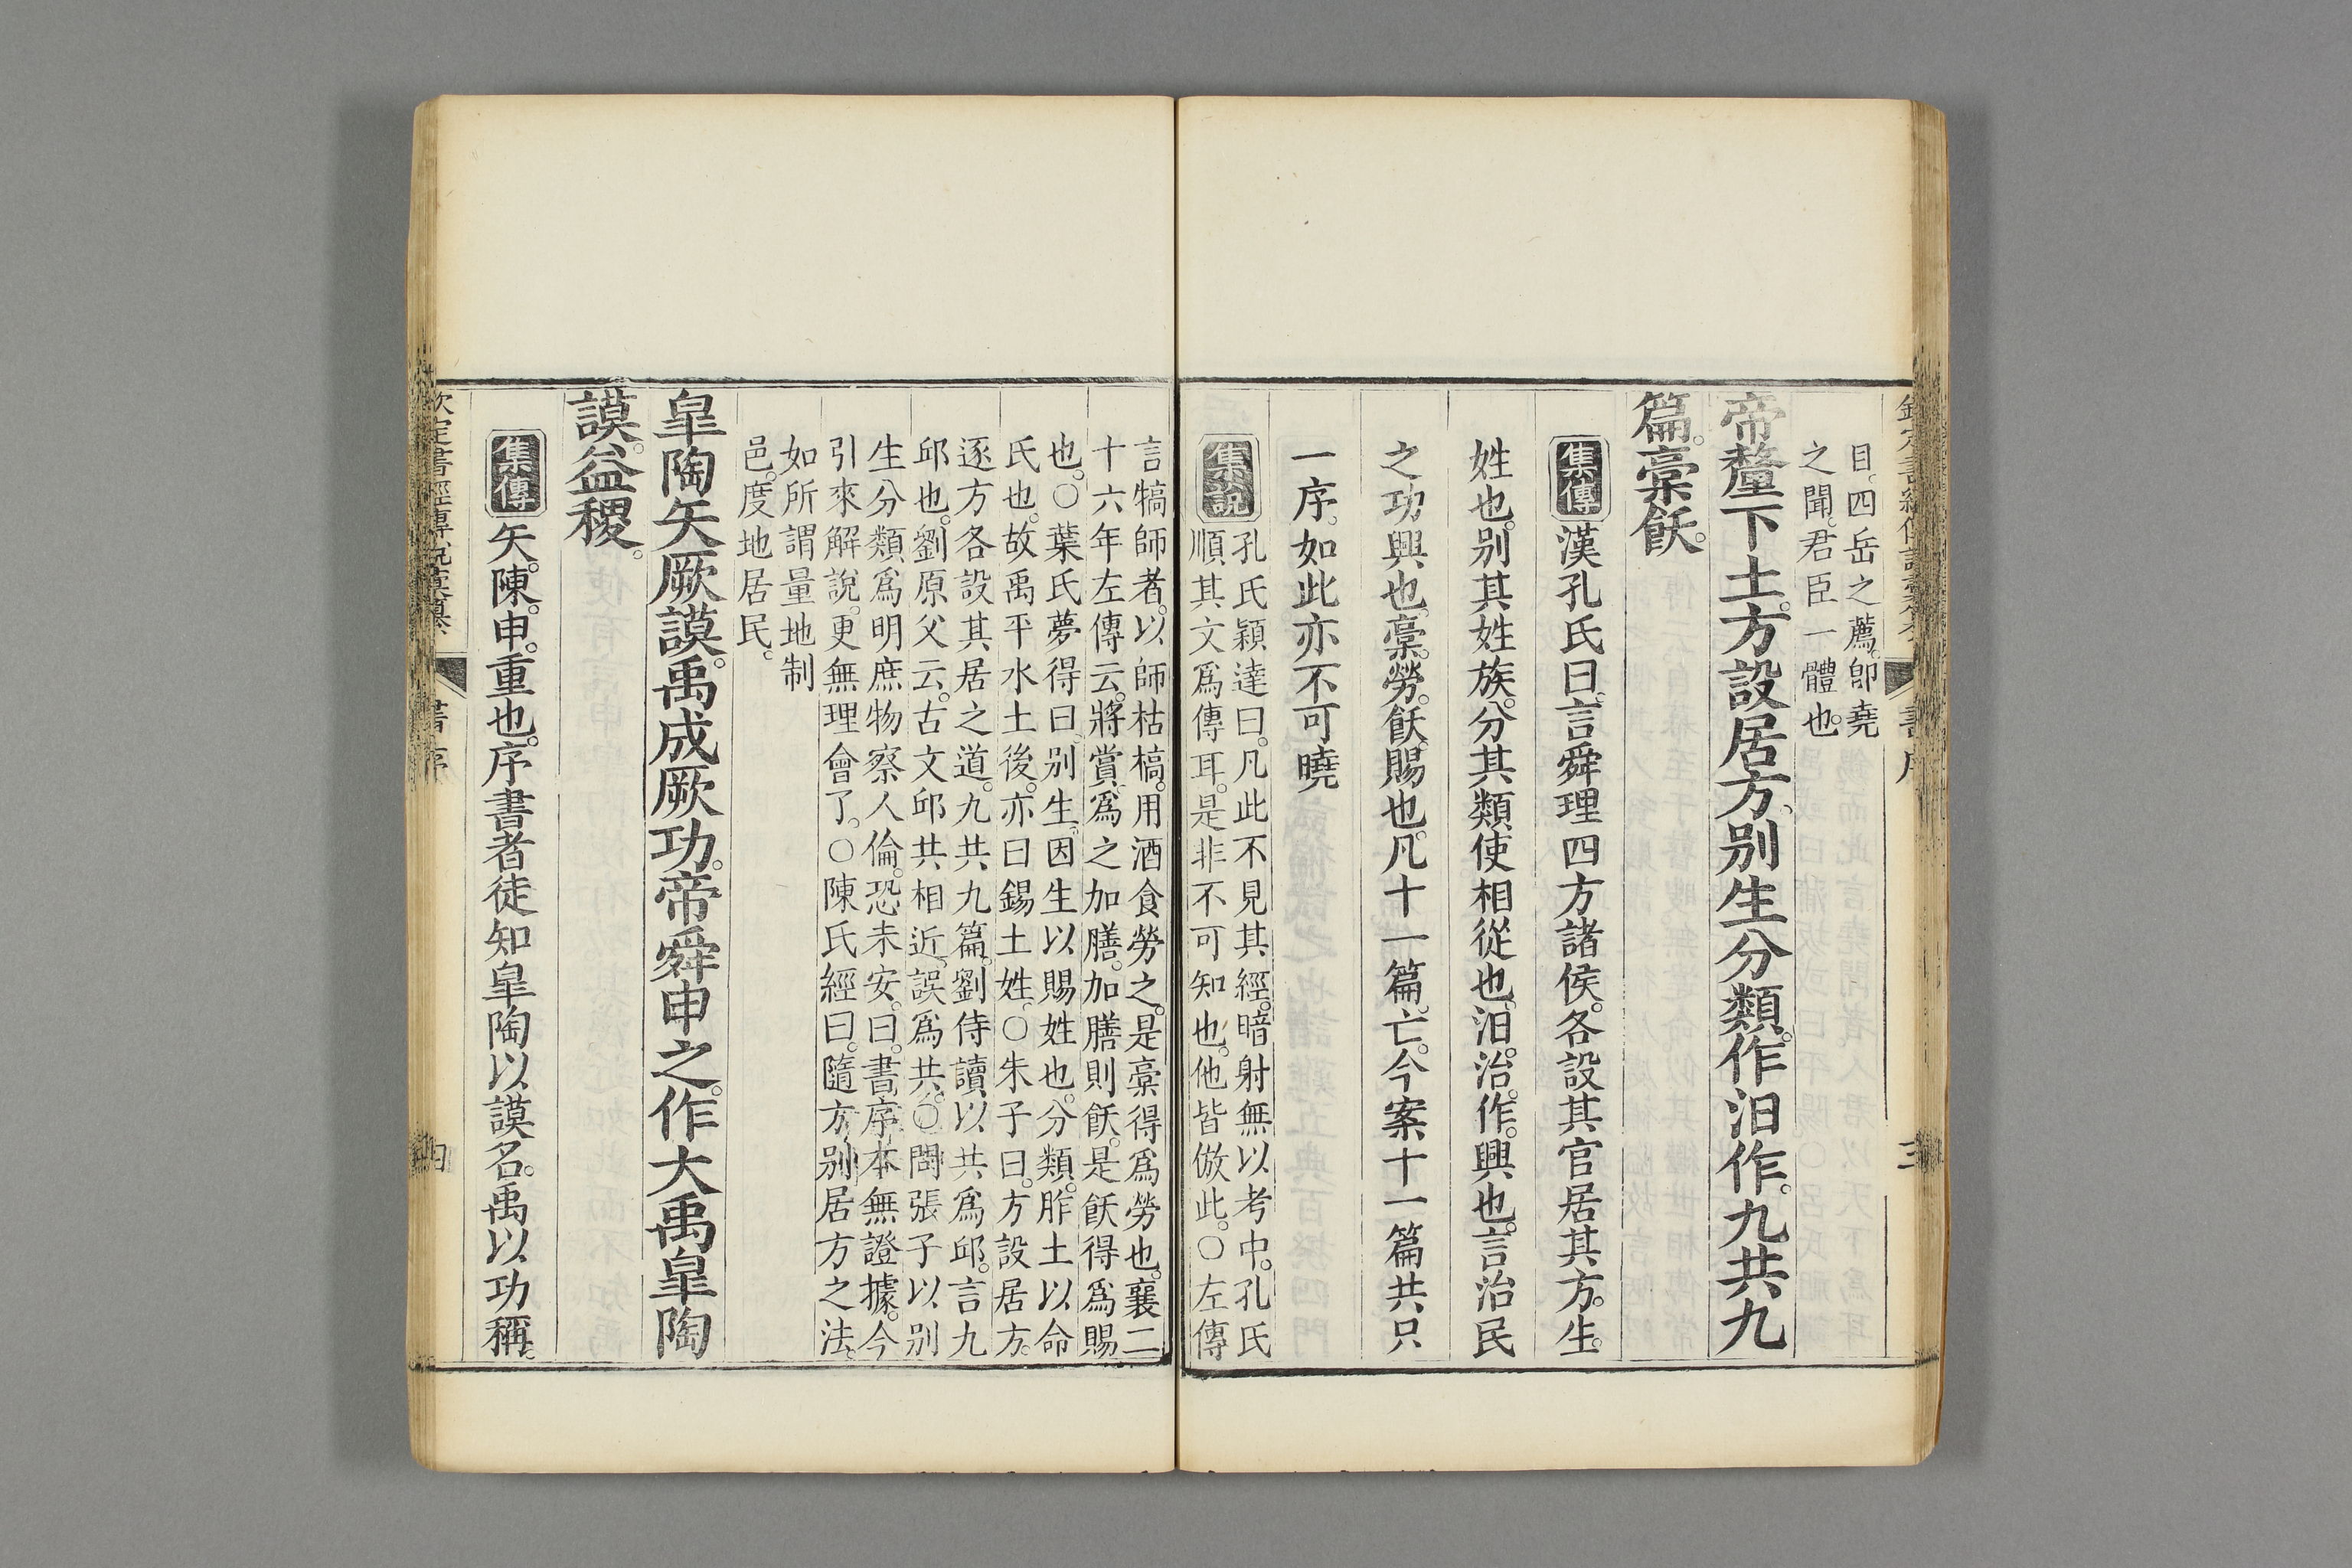 目。四岳之薦。卽堯
之聞。君臣一體也。
帝釐下土。方設居方。别生分類。作汨作。九共九
篇。槀飫。
集傳 漢孔氏曰。言舜理四方諸侯。各設其官居其方。生。
姓也。别其姓族。分其類使相從也。汨。治。作。興也。言治民
之功興也。槀。勞。飫。賜也。凡十一篇。亡。今案十一篇共只
一序。如此亦不可曉
集說 孔氏穎達曰。凡此不見其經。暗射無以考中。孔氏
順其文爲傳耳。是非不可知也。他皆倣此。○左傳
言犒師者。以師枯槁。用酒食勞之。是槀得爲勞也。襄二
十六年左傳云。將賞爲之加膳。加膳則飫。是飫得爲賜
也。○葉氏夢得曰。别生。因生以賜姓也。分類。胙土以命
氏也。故禹平水土後。亦曰錫土姓。○朱子曰。方設居方。
逐方各設其居之道。九共九篇。劉侍讀以共爲邱。言九
邱也。劉原父云。古文邱共相近。誤爲共。○問張子以别
生分類爲明庶物察人倫。恐未安。曰。書序本無證據。今
引來解說。更無理會了。○陳氏經曰。隨方别居方之法。
如所謂量地制
邑。度地居民。
皐陶矢厥謨。禹成厥功。帝舜申之。作大禹皐陶
謨。益稷。
集傳 矢。陳。申。重也。序書者徒知皐陶以謨名。禹以功稱。
書序